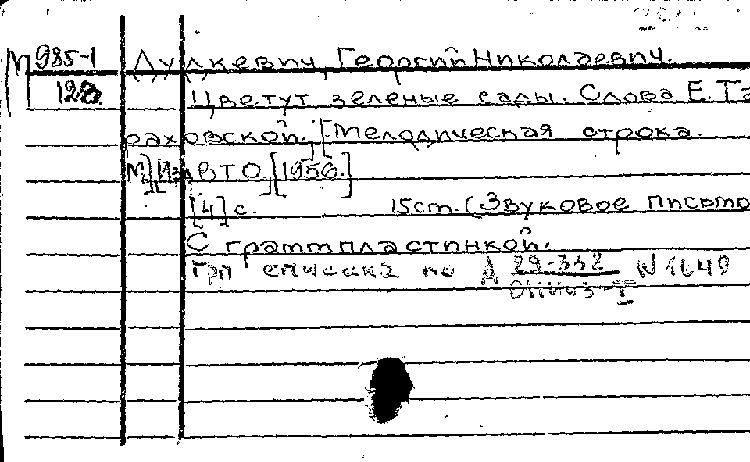 М 985-1 Дулкевич, Георгий Николаевич.
128 Цветут зеленые сады. Слова Е. Та
раховской. [Мелодическая строка.
М.] [Изд. ВТО] [1956.]
[4] с. 15 cm. (Звуковое письмо
С граммпластинкой.
Грп списана по А 29-342 N 1649